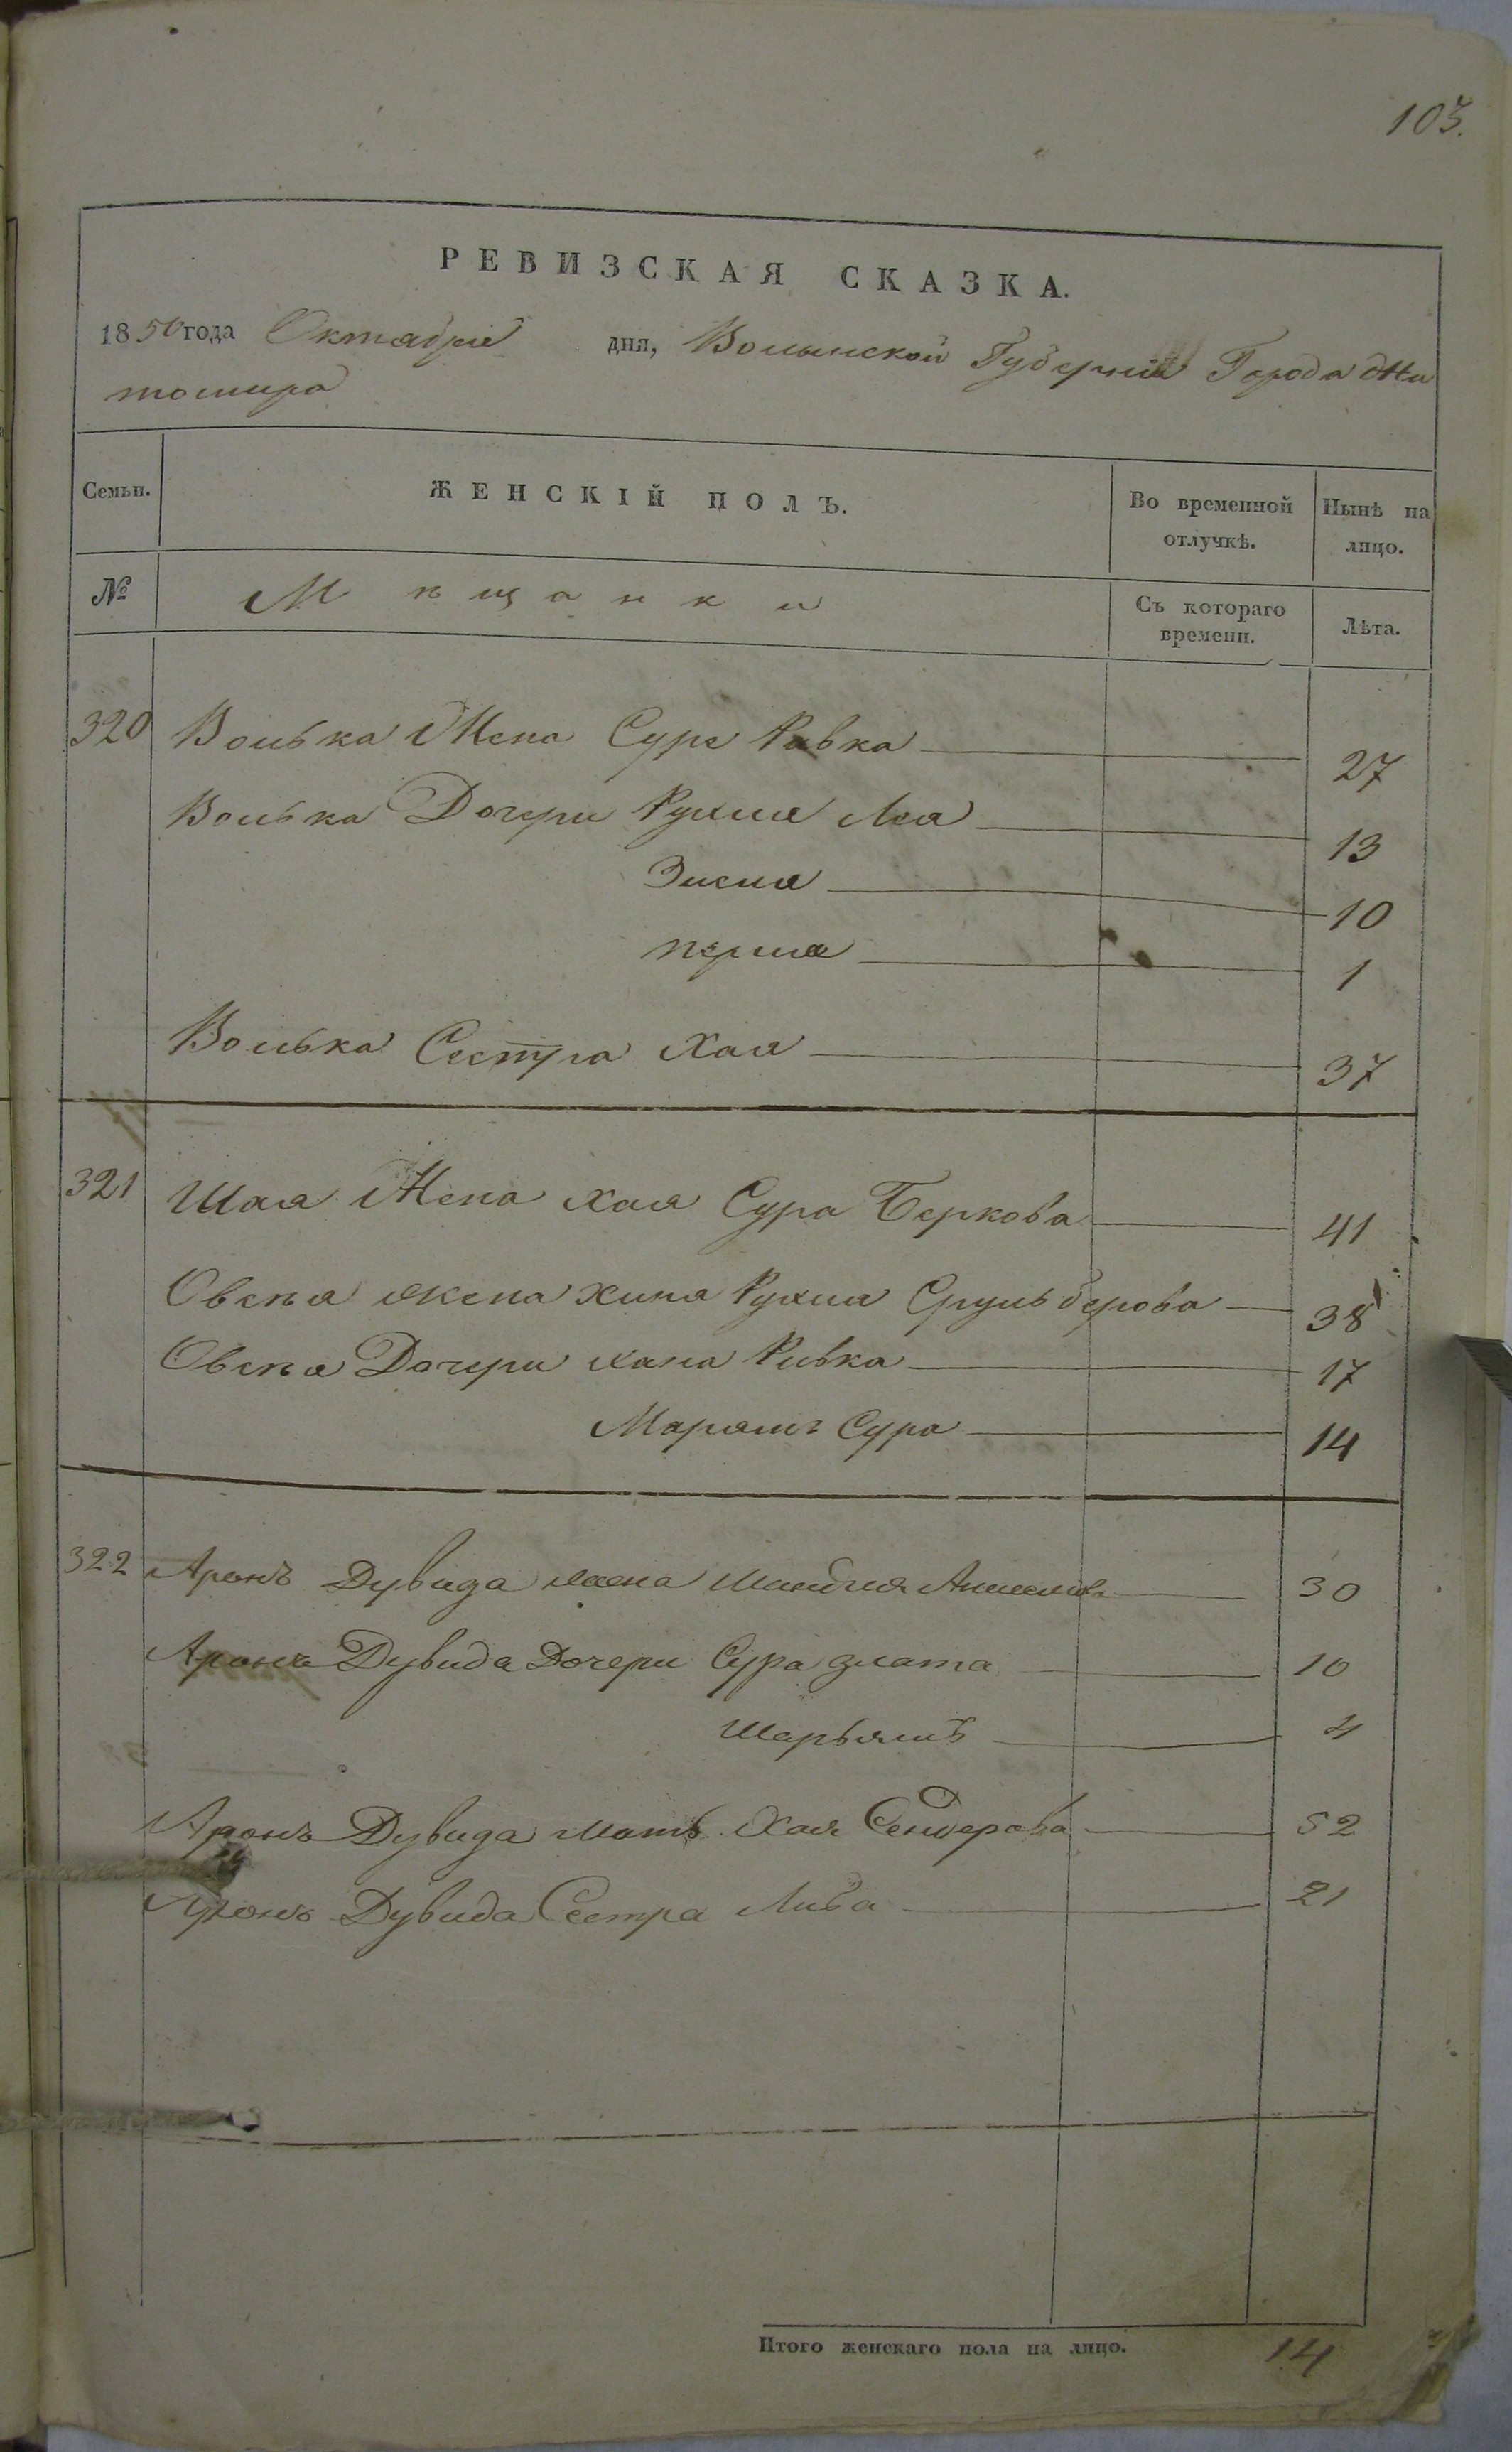 103.
РЕВИЗСКАЯ СКАЗКА.
1850 года Октября дня, Волынской Губерніи Города Жи
томира
Семьи. ЖЕНСКІЙ ПОЛЪ. Во временной отлучкѣ. Нынѣ на лицо.
№ Мѣщанки Съ котораго времени. Лѣта.
320 Волька Жена Суре Рывка 27
Волька Дочери Рухля Лея 13
Зисля 10
перля 1
Волька Сестра Хая 37
321 Шая Жена Хая Сура Беркова 41
Овсѣя жена Хина Рухля Срульберова 38
Овсѣя Дочери Хана Ривка 17
Марямъ Сура 14
322 Аронъ Дувида жена 30
Аронъ Дувида Дочери Сура злата 10
Марьямъ 4
Аронъ Дувида мать Хая Сендерова 52
Аронъ Дувида Сестра Либа 21
Итого женскаго пола на лицо. 14